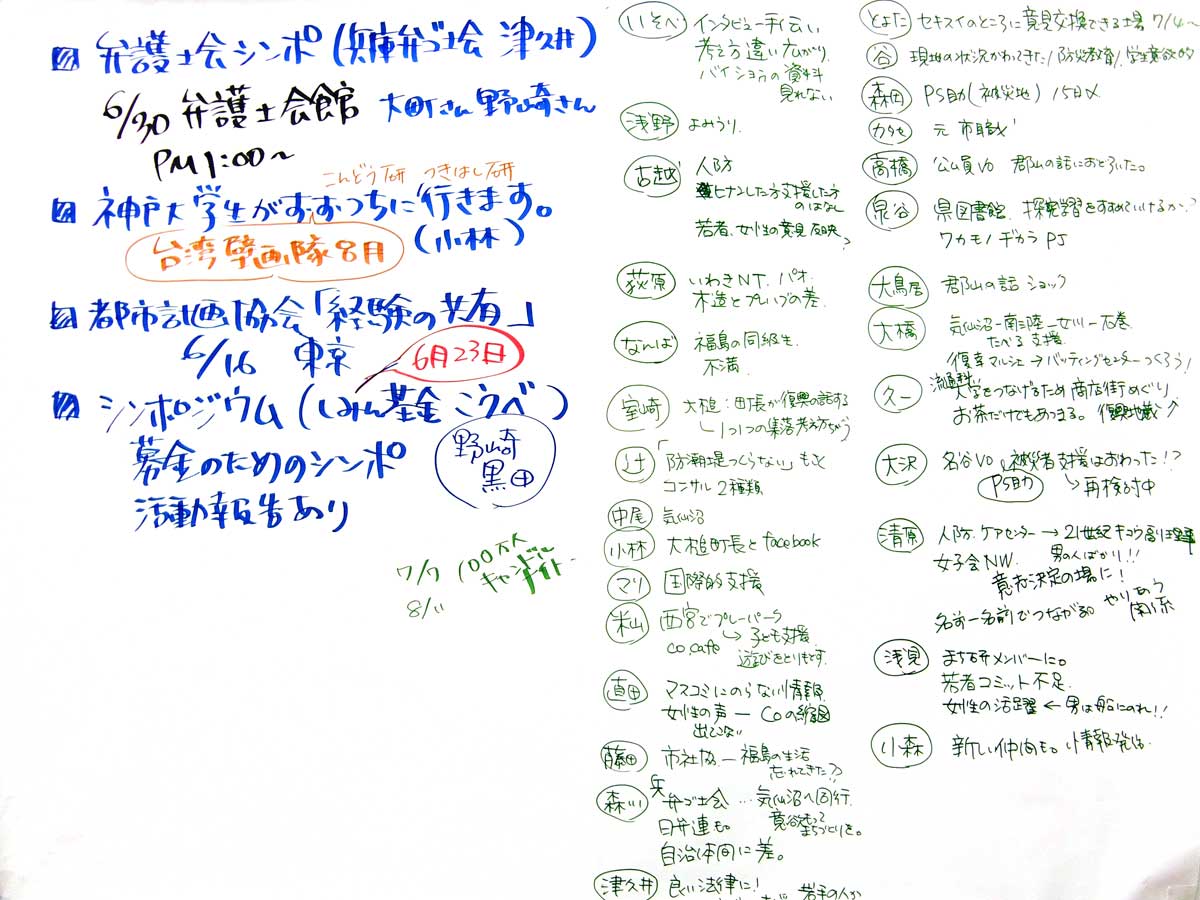 弁護士会シンポ(兵庫弁ゴ士会 津久井)
6/30 弁護士会館 大町さん野崎さん
PM1:00〜
こんどう研 つきはし研
神戸大学生がおおつちに行きます。
(小林)
台湾壁画隊8月
都市計画協会「経験の共有」
6/16 東京
6月23日
シンポジウム(しみん基金こうべ)
募金のためのシンポ
野崎
黒田
活動報告あり
7/7 100万人
キャンドル
ナイト
8/11
いそべ インタビュー手伝い
考え方違い 広がり
バイショウの資料
見れない
浅野 よみうり
古越 人防
ヒナンした方支援した方
のはなし
若者、女性の意見反映?
荻原 いわきNT. パオ
木造とプレハブの差.
なんば 福島の同級生
不満
室崎 大槌:町長が復興の話する
1つ1つの集落考え方ちがう
辻 「防潮堤つくらない」もさく
コンサル2種類
中尾 気仙沼
小林 大槌町長とfacebook
マリ 国際的支援
米山 西宮でプレーパーク
co.cafe → 子ども支援
遊びをとりもどす.
直田 マスコミにのらない情報
女性の声 ー Coの縮図
出てこない
藤田 市社協 ー 福島の生活
忘れてきた?
森川 兵弁ゴ士会 … 気仙沼へ同行
日弁連も。 意欲もって
まちづくりを。
自治体間に差。
津久井 良い法律に!
若手の人が
とよた セキスイのところに意見交換できる場 7/4〜
谷 現地の状況がわかってきた/防災教育/学生意欲的
森田 PS助(被災地)/15日〆
カタセ 元市職
高橋 公山員VO 郡山の話におどろいた。
泉谷 県図書館. 探究学習をすすめていけるか?
ワカモノヂカラPJ
大鳥居 郡山の話 ショック
大橋 気仙沼ー南三陸ー女川ー石巻
たべる支援
復幸マルシェ→バッティングセンターつくろう!
久一 大学をつなげるため商店街めぐり
お茶だけでもあつまる。
大沢 名谷VO 被災者支援はおわった!?
PS助 → 再検討中
清原 人防. ケアセンター → 21世紀キコウ副理事
女子会NW. 男の人ばかり!!
意志決定の場に!
名前ー名前でつながる やりあう
関係
浅見 まち研メンバーに。
若者コミット不足
女性の活躍 ← 男は船にのれ!!
小森 新しい仲間も。情報発信